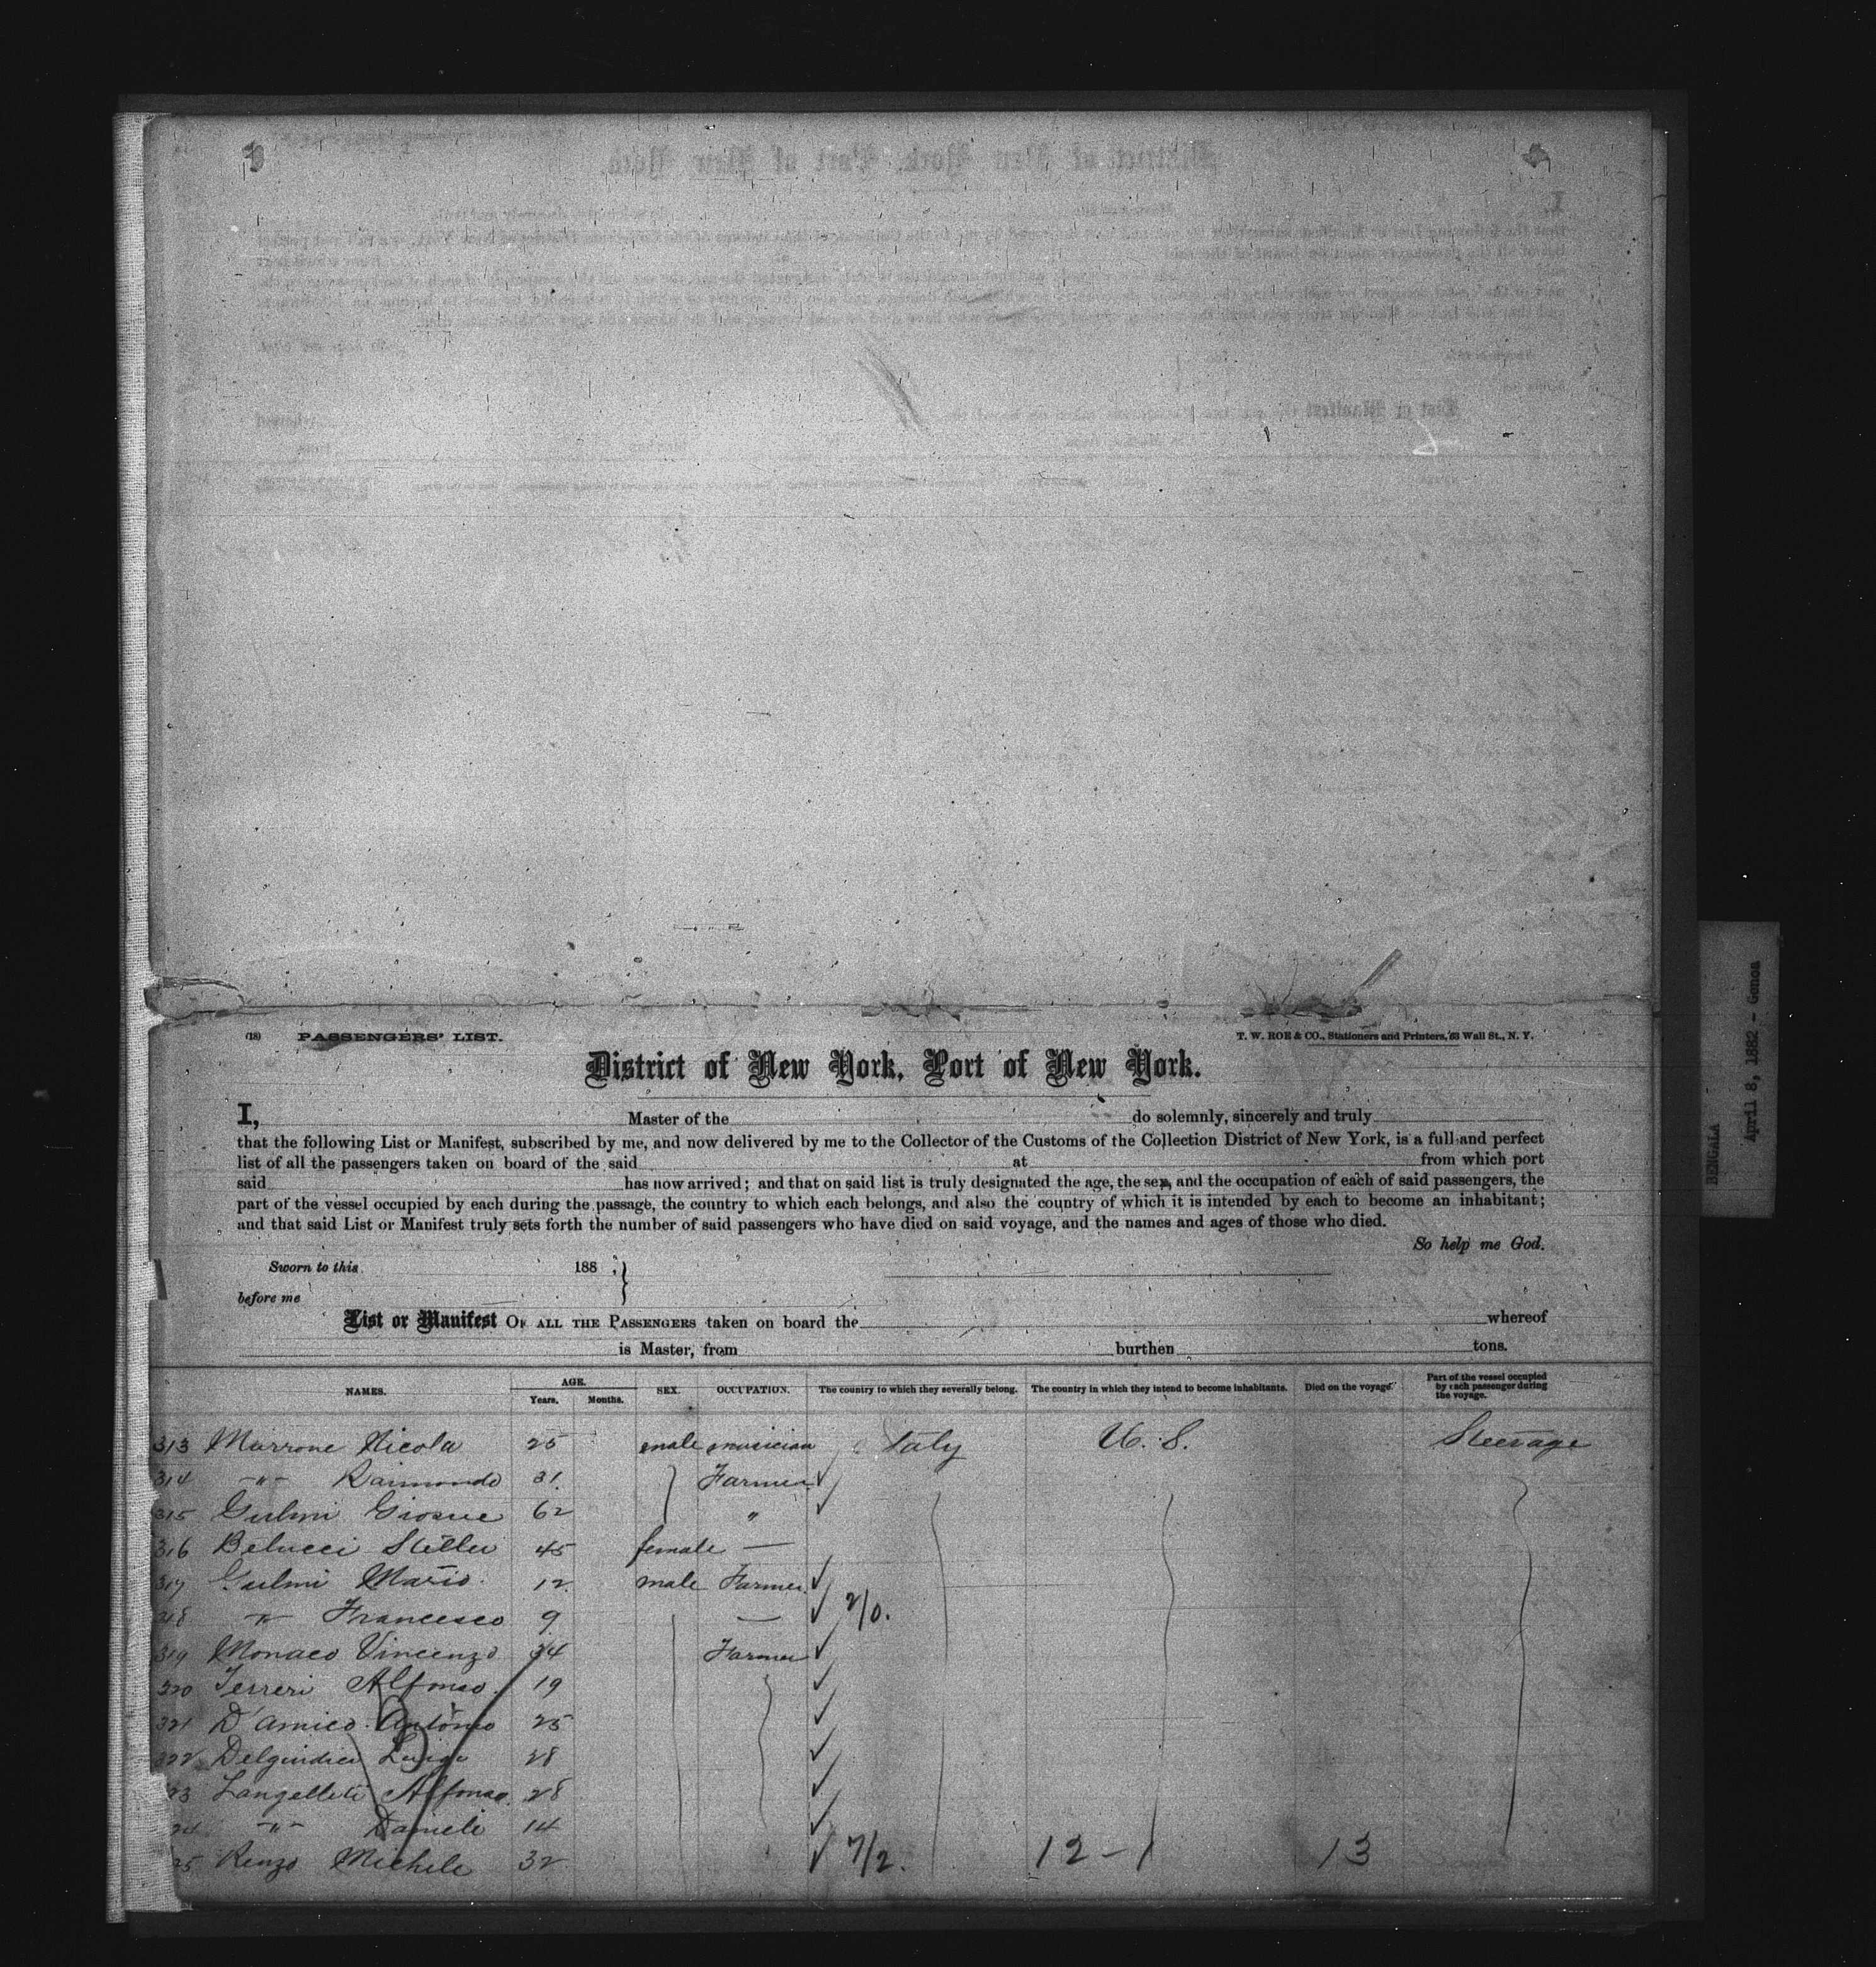 (18) PASSENGERS' LIST. T. W. ROE & CO., Stationers and Printers, 53 Wall St., N. Y.
District of New York, Port of New York.
I, Master of the do solemnly, sincerely and truly
that the following List or Manifest, subscribed by me, and now delivered by me to the Collector of the Customs of the Collection District of New York, is a full and perfect
list of all the passengers taken on board of the said at from which port
said has now arrived; and that on said list is truly designated the age, the sex, and the occupation of each of said passengers, the
part of the vessel occupied by each during the passage, the country to which each belongs, and also the country of which it is intended by each to become an inhabitant;
and that said List or Manifest truly sets forth the number of said passengers who have died on said voyage, and the names and ages of those who died.
So help me God.
Sworn to this 188
before me
List or Manifest OF ALL THE PASSENGERS taken on board the whereof
is Master, from burthen tons.
NAMES. AGE. Years. Months. SEX. OCCUPATION. The country to which they severally belong. The country in which they intend to become inhabitants. Died on the voyage. Part of the vessel occupied by each passenger during the voyage.
313 Marrone Nicola 25 male musician Italy U. S. Steerage
314 -"- Raimondo 31 Farmer
315 Gulmi Giosue 62 "
316 Belucci 45 female —
317 Gulmi Mario 12 male Farmer
318 -"- Francesco 9 — 2/0.
319 Monaco Vincenzo 34 Farmer
320 Ferreri Alfonso 19
321 D'Amico Antonio 25
322 Delguidice Luigi 28
23 Langelleti Alfonso 28
24 -"- Daniele 14
25 Renzo Michele 32 7/2. 12-1 13
BENGALA
April 8, 1882 - Genoa